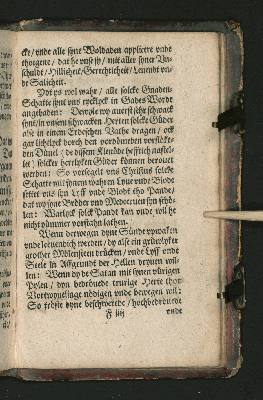 cke/ vnde alle syne Woldaden applicere vnde
thoegene/ dat he unse sy/ mit aller syner Vn-
schuldt/ Hilligheit/ Gerechticheit/ Leuendt vn-
de Salicheit.
Jdt ys wol wahr/ alle solcke Gnaden-
Schatte sint uns rycklyck in Gades Worde
angebaden: Dewyle wy auerst sehr schwack
sint/ in vnsem schwacken Herten solcke Güder
alse in einem Erdeschen Vathe dragen/ ock
gar lichtlyck durch den vordömeden
den Düuel
let) solcker herrlyken Güder können berouet
werden: So vorsegelt uns Christus solcke
Schatte mit synem wahren Lyue vnde Blode
settet uns syn Lyff vnde Blodt tho Pande/
dat wy syne Bröder vnd Medeeruen syn schö-
len: Warlyck solck Pandt kan vnde wil he
nicht nümmer vorstahn lathen.
Wenn derwegen dyne Sünde vpwaken
vnde leuendich werden/ dy alse ein
grother Möhlenstein drücken/ vnde Lyff vnde
Seele in Affgrundt der Hellen bryuen wil-
len: Wenn dy de Satan mit synen vürigen
Pylen/ dyn bedröuede trurige Herte thor
Vortwyuelinge nödigen vnde bewegen wil:
So dyne beschwerede/ hochbedröuede
F iiij vnde